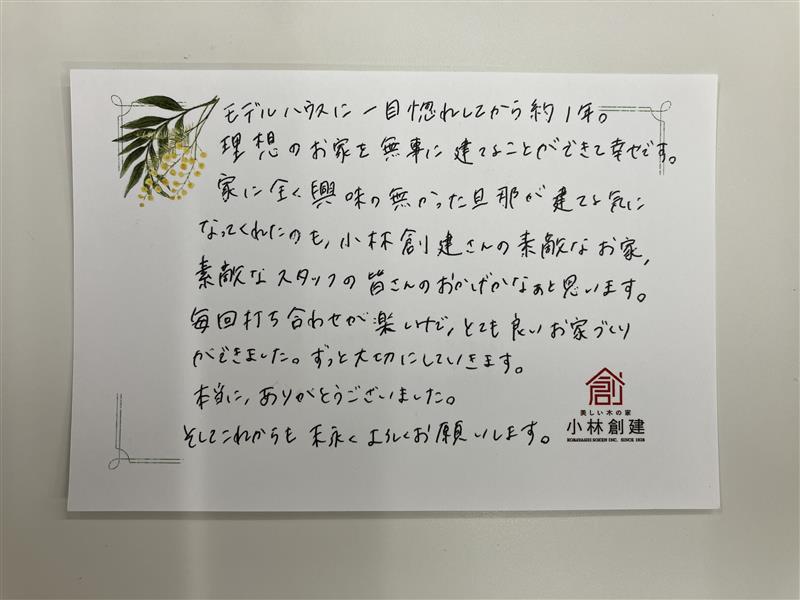 モデルハウスに一目惚れしてから約1年。
理想のお家を無事に建てることができて幸せです。
家に全く興味の無かった旦那が建てる気に
なってくれたのも、小林創建さんの素敵なお家、
素敵なスタッフの皆さんのおかげかなぁと思います。
毎回打ち合わせが楽しいけで、とても良いお家づくり
ができました。ずっと大切にしていきます。
本当に、ありがとうございました。
そしてこれからも末永くよろしくお願いします。
創
美しい木の家
小林創建
KOBAYASHI SOKEN INC. SINCE 1928